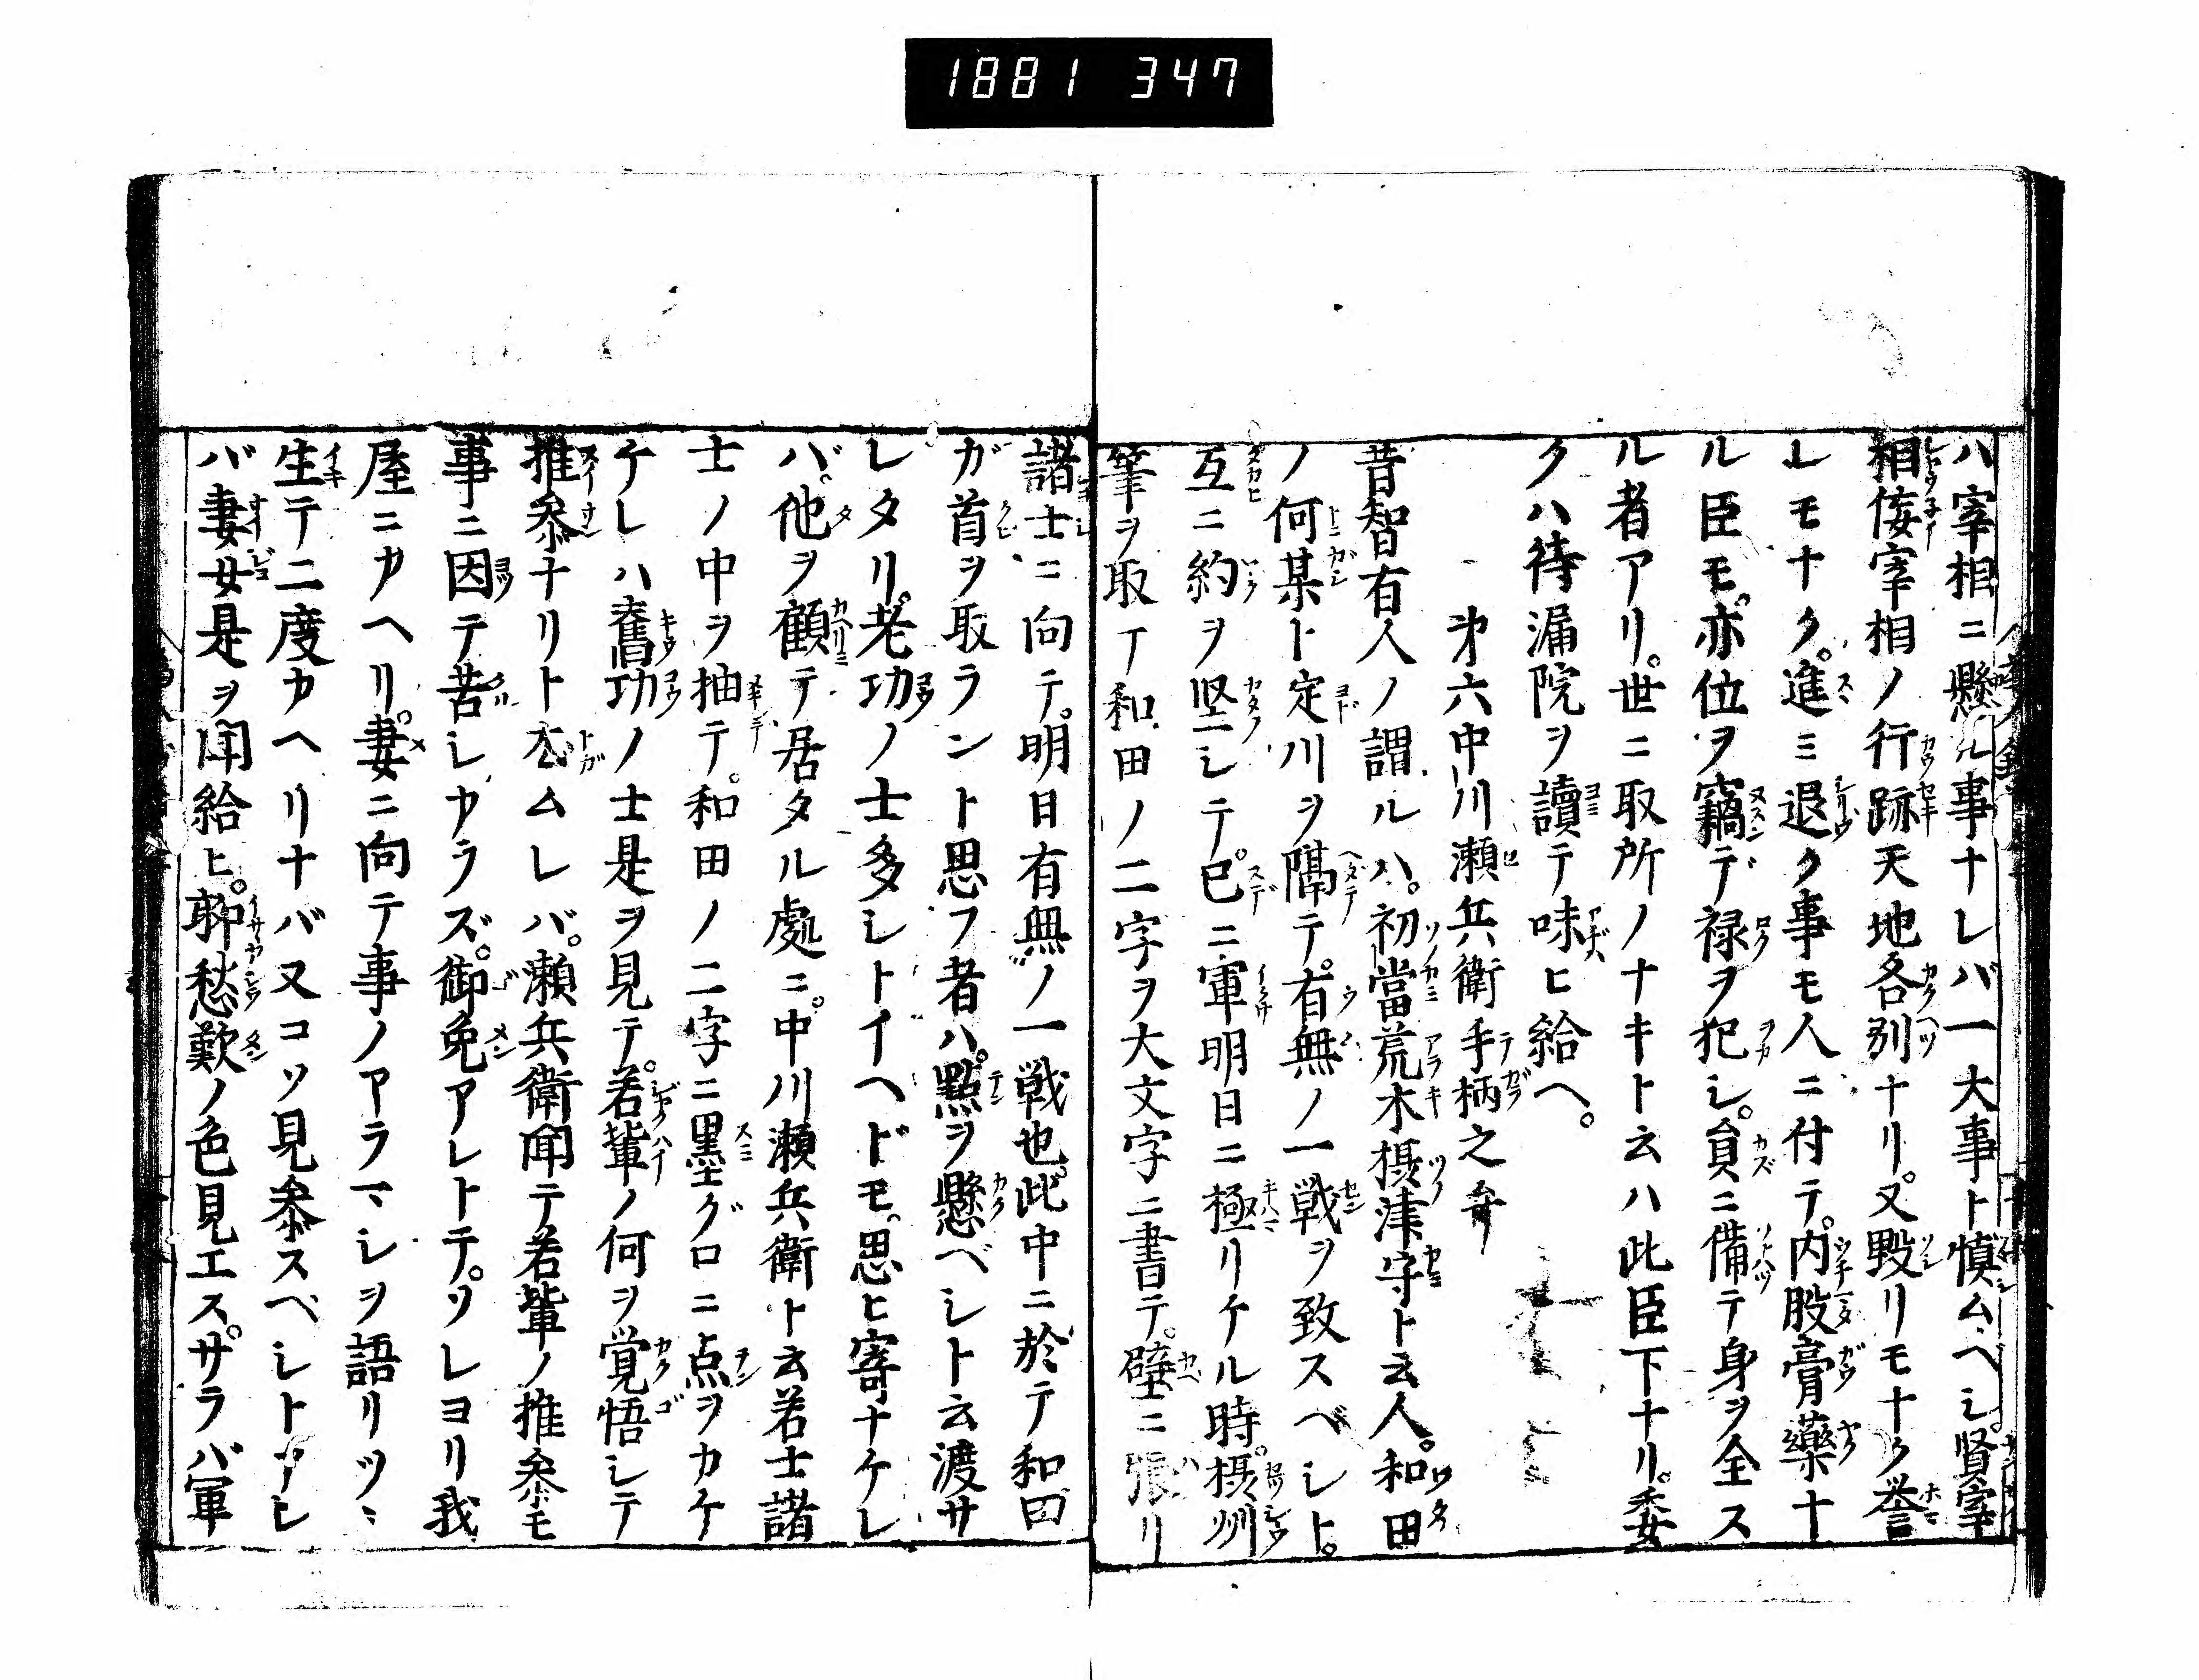 1881 347
ハ宰相ニ懸ル事ナレバ一大事ト慎ムベシ。賢宰
相佞宰相ノ行跡天地各別ナリ。又毀リモナク誉
レモナク。進ミ退ク事モ人ニ付テ。内股膏藥ナ
ル臣モ。亦位ヲ竊デ禄ヲ犯シ。員ニ備テ身ヲ全ス
ル者アリ。世ニ取所ノナキト云ハ此臣下ナリ。委
クハ待漏院ヲ讀テ味ヒ給ヘ。
第六中川瀬兵衛手柄之弁
昔智有人ノ謂ルハ。初當荒木摂津守ト云人。和田
ノ何某ト定川ヲ隔テ。有無ノ一戦ヲ致スベシト。
互ニ約ヲ堅シテ。已ニ軍明日ニ極リケル時。摂州
筆ヲ取テ和田ノ二字ヲ大文字ニ書テ。壁ニ張リ
諸士ニ向テ。明日有無ノ一戦也。此中ニ於テ和田
ガ首ヲ取ラント思フ者ハ。點ヲ懸ベシト云渡サ
レタリ。老功ノ士多シトイヘドモ。思ヒ寄ナケレ
バ。他ヲ顧テ居タル處ニ。中川瀬兵衛ト云若士諸
士ノ中ヲ抽テ。和田ノ二字ニ墨グロニ点ヲカケ
ケレハ舊功ノ士是ヲ見テ。若輩ノ何ヲ覚悟シテ
推参ナリト尤ムレバ。瀬兵衛聞テ若輩ノ推参モ
事ニ因テ苦シカラズ。御免アレトテ。ソレヨリ我
屋ニカヘリ。妻ニ向テ事ノアラマシヲ語リツヽ
生テ二度カヘリナバ又コソ見参スベシトアレ
バ妻女是ヲ聞給ヒ。聊愁歎ノ色見エス。サラバ軍